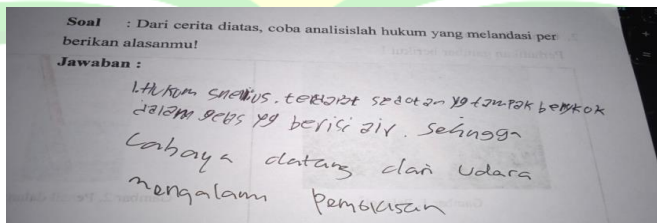 Soal : Dari cerita diatas, coba analisislah hukum yang melandasi per
berikan alasanmu!
Jawaban :
1. Hukum snellius. terkait sedotan yg tampak bengkok
dalam gelas yg berisi air. Sehingga
Cahaya datang dari Udara
mengalami Pembiasan